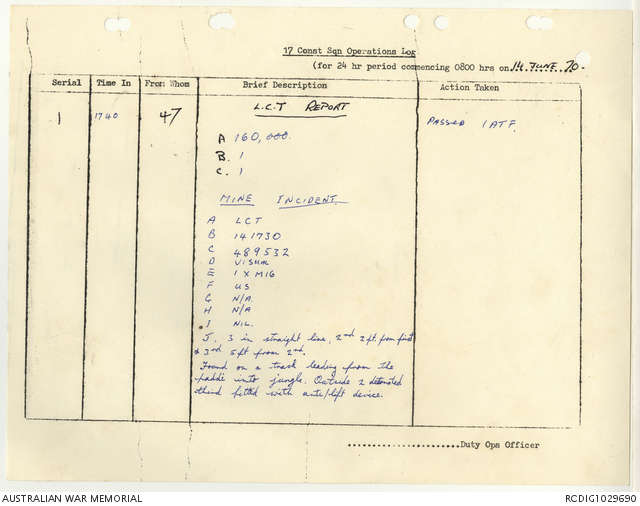 17 Const Sqn Operations Log
(for 24 hr period commencing 0800 hrs on 14 JUNE 70.
Serial Time In From Whom Brief Description Action Taken
1 1740 47 L.C.T REPORT PASSED 1 ATF.
A 160,000.
B. 1
C. 1
MINE INCIDENT.
A LCT
B 141730
C 489532
D VISUAL
E 1 X M16
F US
G N/A.
H N/A
I NIL.
J. 3 in straight line, 2nd 2ft. from first
& 3rd 5ft from 2nd.
Found on a track leading from the
paddi into jungle. Outside 2 detonated
third fitted with ante/lift device.
Duty Ops Officer
AUSTRALIAN WAR MEMORIAL
RCDIG1029690